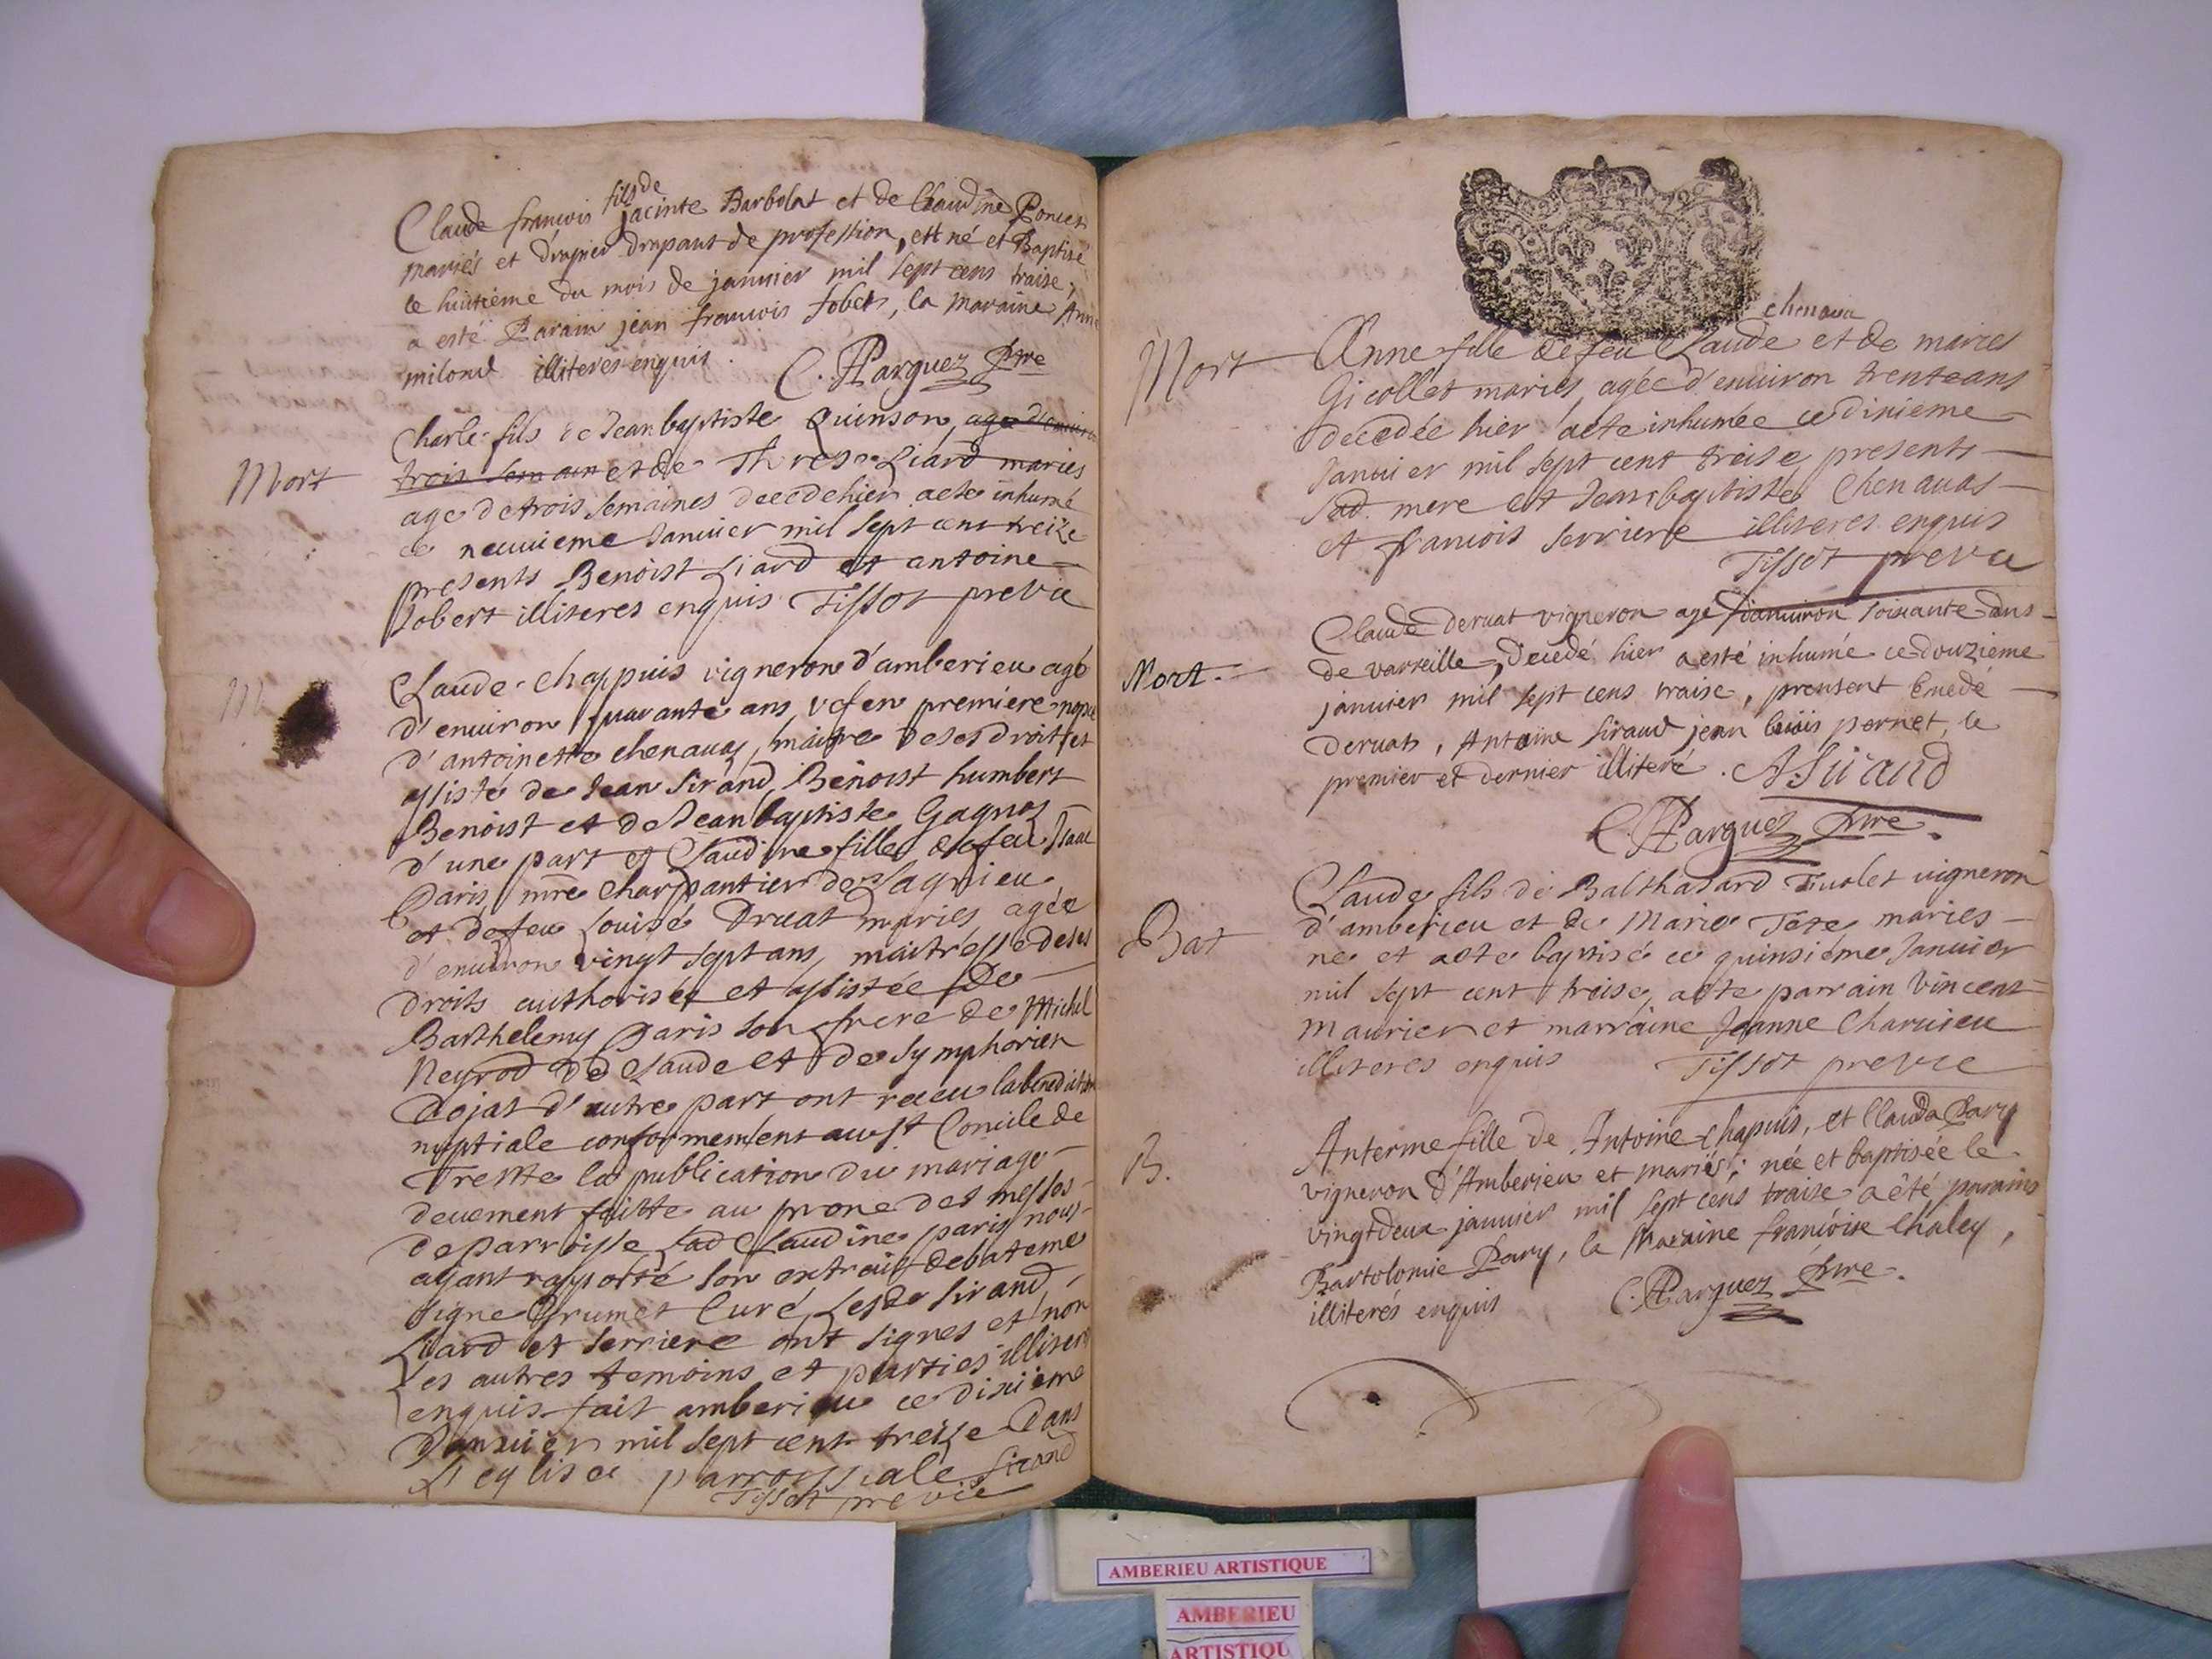 Claude francois fils de jacinte Barbolat et de Claudine Poncet
mariés et drapier drapant de profession, ett né et Baptisé
le huitième du mois de januier mil sept cens traise,
a esté Parain jean francois Jobert, la maraine Anne
milond illiterés enquis. C. Parguez Ptre
Charle fils de Jean baptiste Quinson, agé d'enuiron
Mort trois semain et de Threse Liard mariés
age de trois semaines decede hier aeté inhumé
ce neuuieme Januier mil sept cent treize
presents Benoist Liard et antoine
Jobert illiteres enquis Tissot previc
M
Claude chappuis vigneron d'amberieu agé
d'enuiron quarante ans vef en premiere nopce
d'antoinette chenauas, maitre de ses droits et
assisté de Jean Sirand, Benoist humbert
Benoist et de Jean baptiste Gagnos
d'une part et Claudine fille de feu Isaac
Paris mre charpantier de Lagnieu
et de feu Louise Druat mariés agée
d'enuiron vingt sept ans, maitresse de ses
droits authorisée et assistée de
Barthelemy Paris son frere de Michel
Neyrod de Claude et de Symphorien
Dojat d'autre part ont receu la benediction
nuptiale conformement au st Concile de
Trente la publication du mariage
deuement faitte au prone des messes
de parroisse lad Claudine paris nous
ayant rapporté son extrait de bateme
signe Brumet Curé, lesd Sirand,
Liard et Serriere ont signes et non
Les autres temoins et parties illiteres
enquis fait amberieu ce dixième
Januier mil sept cent treize dans
L'eglise parroissiale Sirand
Tissot previc
chenaua
Mort Anne fille de feu Claude et de mariee
Gicollet mariés agée d'enuiron trente ans
decedée hier aeté inhumée ce dixieme
Januier mil sept cent treise presents
sad. mere et Jean baptiste Chenauas
et francois Serriere illiteres enquis
Tissot previc
Claude deruat vigneron agé d'anuiron soixante dans
Mort. de varreille, decedé hier a esté inhumé ce douzième
januier mil sept cens traise, prensent Enedé
deruat, Antoine Siraud jean louis pernet, le
premier et dernier illiteré. ASiraud
C. Parguez Ptre.
Claude fils de Balthasard Tuolet uigneron
Bat d'amberieu et de Marie Tete mariés
né et aeté baptisé ce quinsiéme Januier
mil sept cent treise, aeté parrain Vincent
Maurier et marraine Jeanne Charuieu
illiteres enquis Tissot previc
B. Anterme fille de Antoine Chapuis, et Clauda Pary
vigneron d'Amberieu et mariés; née et baptisée le
vingtdeux januier mil sept cens traise a été parains
Bartolomie Pary, la Maraine francoise Chaley,
illiterés enquis C. Parguez Ptre.
AMBERIEU ARTISTIQUE
AMBERIEU
ARTISTIQU